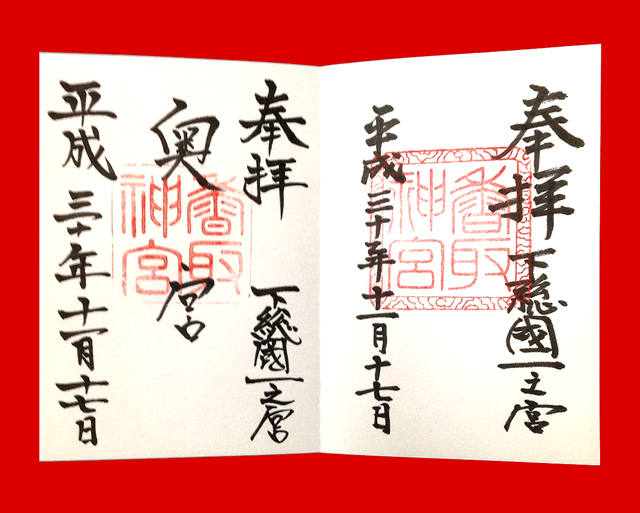 奉拝 下総國一之宮
香取神宮
平成三十年十一月十七日
奉拝 下総國一之宮
奥宮
香取神宮
平成三十年十一月十七日